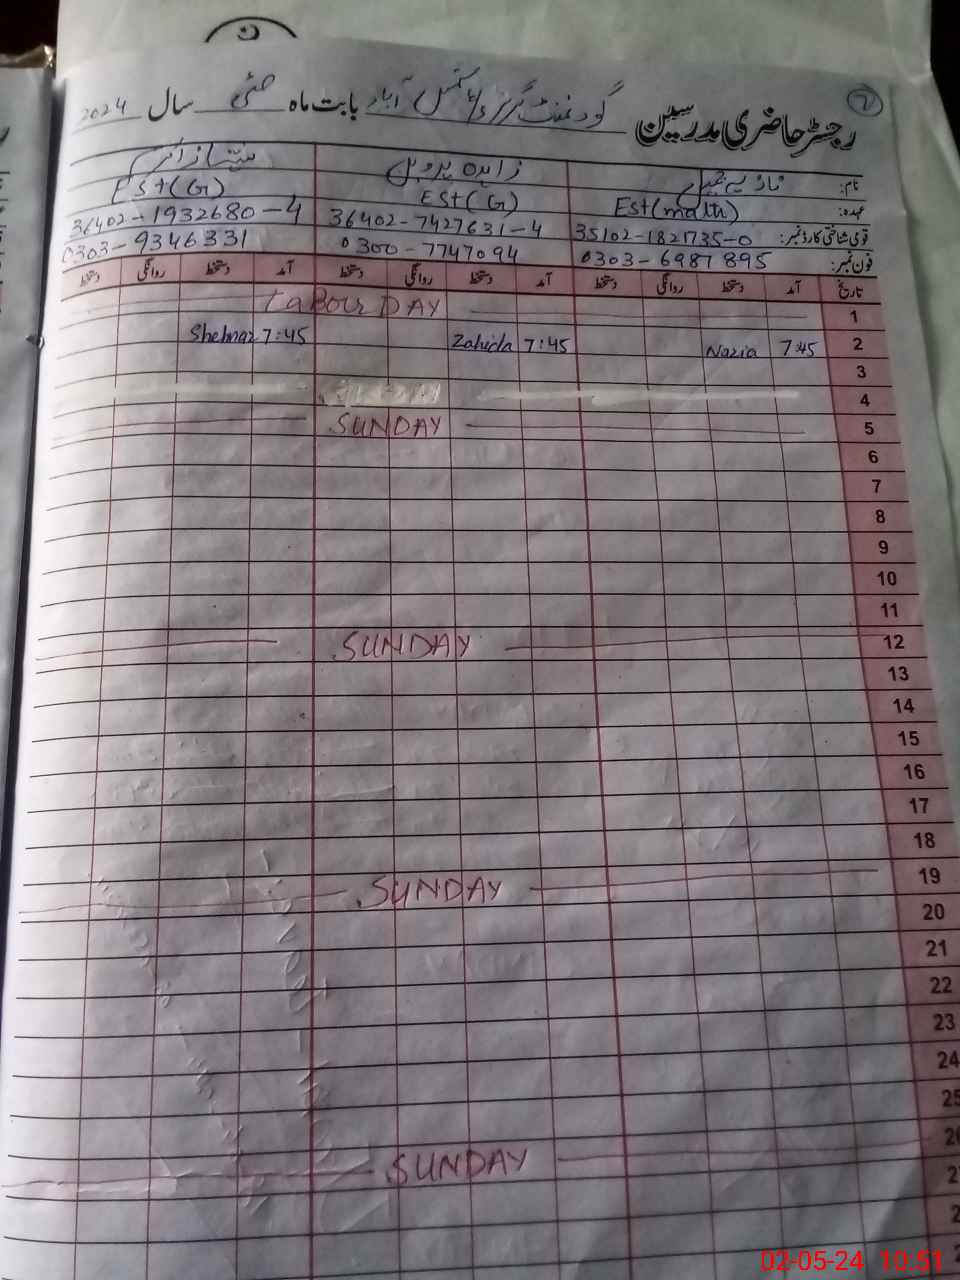 ن
۷
رجسٹر حاضری مدرسین گورنمنٹ گرلز آباد بابت ماہ مئی سال 2024
نام: نازیہ زاہدہ پروین شہناز اختر
عہدہ: Est(math) EST(G) EST(G)
قومی شناختی کارڈ نمبر: 35102-1821735-0 36402-7427631-4 36402-1932680-4
فون نمبر: 0303-6987895 0300-7747094 0303-9346331
تاریخ آمد دستخط روانگی دستخط آمد دستخط روانگی دستخط آمد دستخط روانگی دستخط
1 Labour DAY
2 7:45 Nazia 7:45 Zahida 7:45 Shehnaz
3
4
5 SUNDAY
6
7
8
9
10
11
12 SUNDAY
13
14
15
16
17
18
19 SUNDAY
20
21
22
23
24
25
26 SUNDAY
02-05-24 10:51